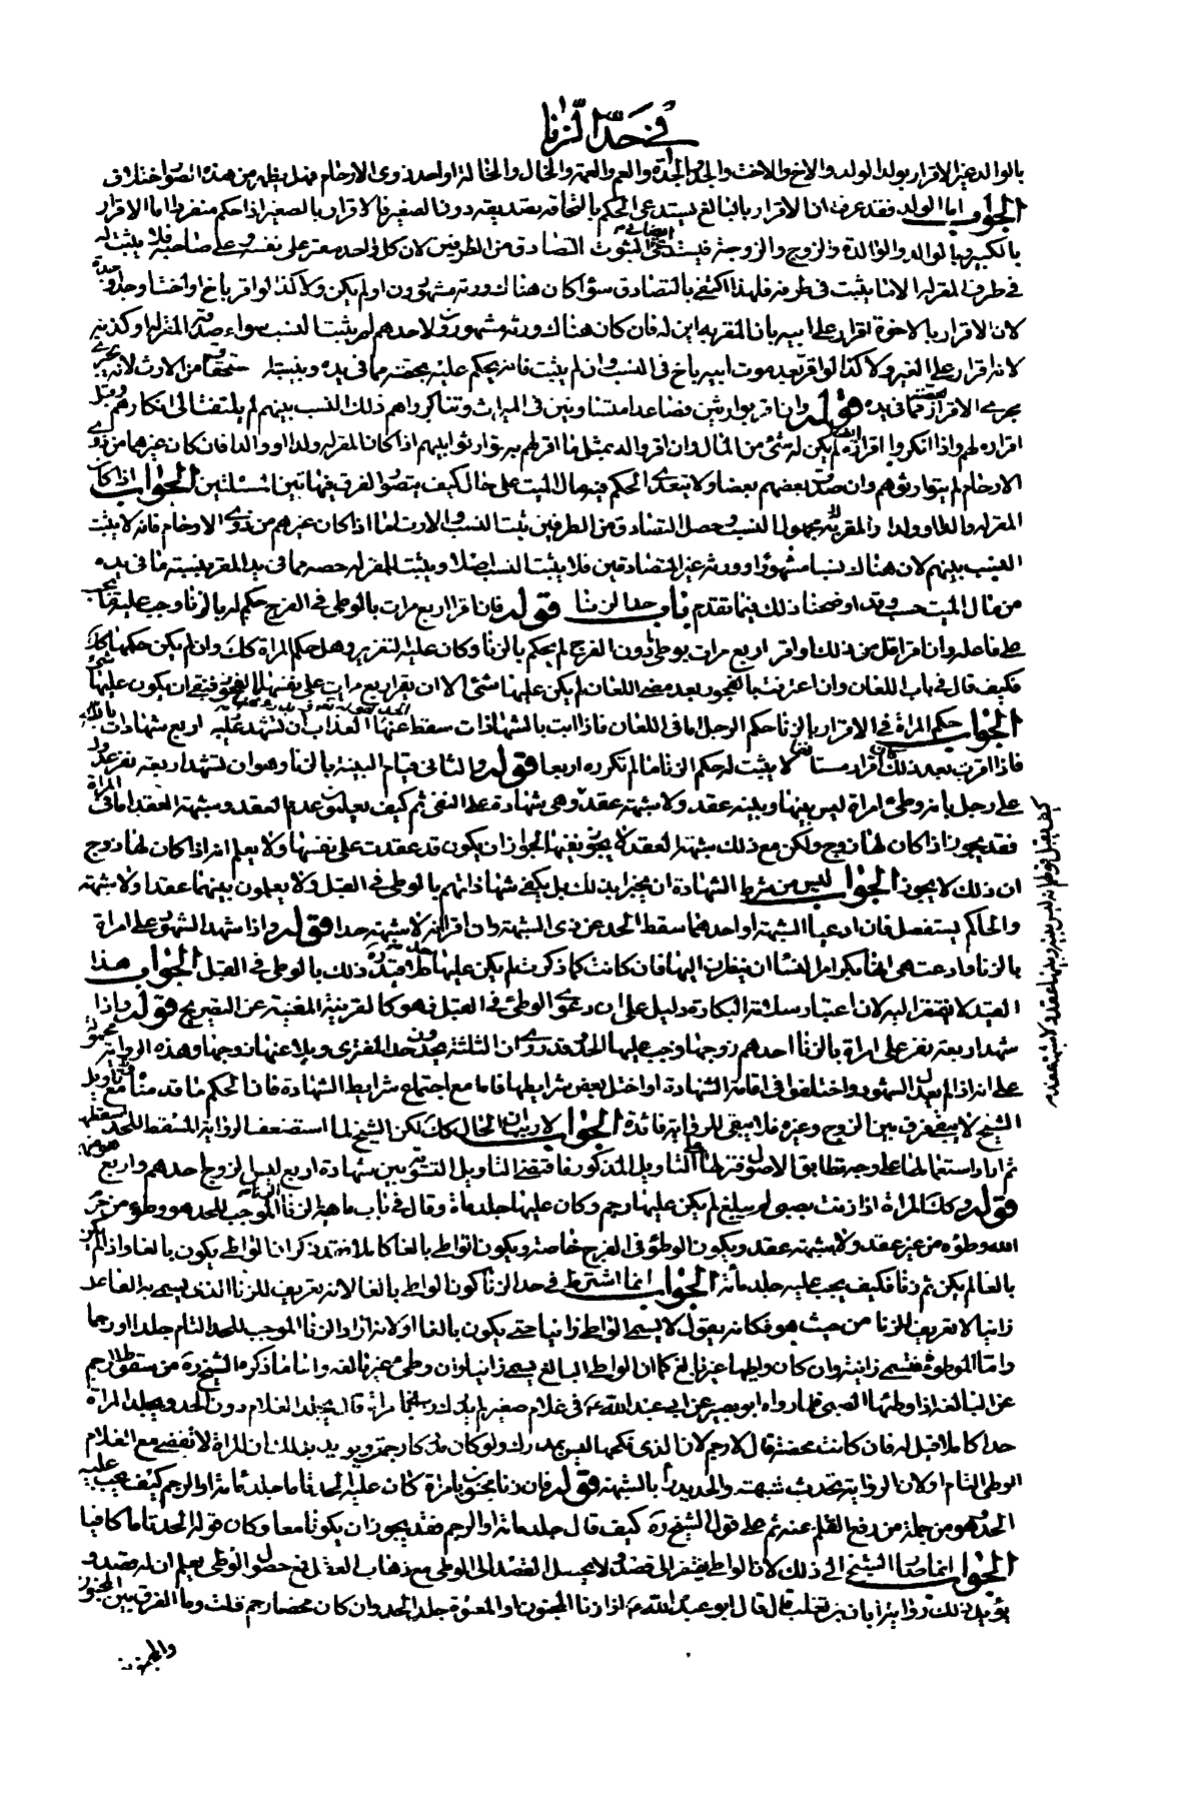 في حد الزنا
بالوالد غير الاقرار بولد الولد والاخ والاخت والجد والجدة والعم والعمة والخال والخالة او احد ذوى الارحام فهل يظهر من هذه الصور اختلاف
الجواب اما الولد فقد عرفت ان الاقرار بالبالغ يستدعى الحكم بالتحاقه تصديقه دون الصغير فالاقرار بالصغير اذا حكم منفردا اما الاقرار
بالكبير وبالوالد والوالدة والزوج والزوجة فيستدعى الثبوت التصادق من الطرفين لان كل واحد مقر على نفسه وعلى صاحبه فلا يثبت له
في طرف المقر له الا ما يثبت في طرفه فلهذا اكتفى بالتصادق سواء كان هناك ورثة مشهورون او لم يكن ولا كذا لو اقر باخ او اخت او جد او جدة
لان الاقرار بالاخوة اقرار على ابيه بان المقر به ابن له فان كان هناك ورثة مشهورون ولاحدهم لم يثبت النسب سواء صدقه المقر له او كذبه
لانه اقرار على الغير ولا كذا لو اقر بعد موت ابيه باخ في النسب وان لم يثبت فانه يحكم عليه بحصته مما في يده وبنسبته مستحقا من الارث لانه يجرى
مجرى الاقرار بحصته مما في يده قوله وان اقر بوارثين فصاعدا متساويين في الميراث وتناكروا هم ذلك النسب بينهم لم يلتفت الى انكارهم وقبل
اقراره لهم واذا انكروا اقراره لم يكن له شئ من المال وان اقر واله بمثل ما اقر لهم به توارثوا بينهم اذا كان المقر له ولدا او والدا فان كان غيرهما من ذوى
الارحام لم يتوارثوا هم وان صدق بعضهم بعضا ولا يتعدى الحكم فيه مال الميت على حال كيف يتصور الفرق في هاتين المسئلتين الجواب اذا كان
المقر له والدا او ولدا والمقر به مجهول النسب وحصل التصادق من الطرفين ثبت النسب والارث اما اذا كان غيرهم من ذوى الارحام فانه لا يثبت
النسب بينهم لان هناك نسبا مشهورا وورثة غير المتصادقين فلا يثبت النسب اصلا ويثبت للمقر له حصة مما في يد المقر بنسبته ما في يده
من مال الميت حسب وقد اوضحنا ذلك فيما تقدم باب حد الزنا قوله فان اقر اربع مرات بالوطى في الفرج حكم له بالزنا ووجب عليه ما يجب
على فاعله وان اقر اقل من ذلك او اقر اربع مرات بوطى دون الفرج لم يحكم بالزنا وكان عليه التعزير وهل حكم المراة كك وان لم يكن حكمها كك
فكيف قال في باب اللعان وان اعترفت بالفجور بعد مضى اللعان لم يكن عليها شئ الا ان يقر اربع مرات على نفسها بالفجور فينبغى ان يكون عليها شئ
الجواب حكم المراة في الاقرار بالزنا حكم الرجل اما في اللعان فاذا اتت بالشهادات سقط عنها العذاب ان تشهد عليه اربع شهادات بالله
فاذا اقرت بعد ذلك كان اقرار مستانفا لا يثبت له حكم الزنا ما لم تكرره اربعا قوله والثانى قيام البينة بالزنا وهو ان تشهد اربعة نفر عدول
على رجل بانه وطى امراة ليس بينها وبينه عقد ولا شبهة عقد وهى شهادة على النفى ثم كيف يعلمون عدم العقد وشبهة العقد اما في المراة
فقد يجوز اذا كان لها زوج ولكن مع ذلك شبهة العقد لا يجوز نفيها لجواز ان يكون قد عقدت على نفسها ولا يعلم انه اذا كان لها زوج
ان ذلك لا يجوز الجواب ليس من شرط الشهادة ان يخبر بذلك بل يكفى شهادتهم بالوطى في القبل ولا يعلمون بينهما عقدا ولا شبهة
والحاكم يستفصل فان ادعيا الشبهة او احدهما سقط الحد عن ذى الشبهة وان اقر انه لا شبهة حدا قوله واذا شهد الشهود على امراة
بالزنا وادعت هى انها بكر امر النساء ان ينظرن اليها فان كانت كما ذكرت لم يكن عليها حد هل قيد ذلك بالوطى في القبل الجواب هذا
القيد لا يفتقر اليه لان اعتبار سلامة البكارة دليل على ان دعوى الوطئ في القبل فهو كالقرينة المغنية عن التصريح قوله واذا
شهد اربعة نفر على امراة بالزنا احدهم زوجها وجب عليها الحد وقد روى ان الثلثة يحدون حد المفترى ويلاعنها زوجها وهذه الرواية محمولة
على انه اذا لم يعدل الشهود واختلفوا في اقامة الشهادة او اختل بعض شرايطها فاما مع اجتماع شرايط الشهادة فان الحكم ما قدمناه مع تأويل
الشيخ لا يبقى فرق بين الزوج وغيره فلا يبقى للرواية فائدة الجواب لا ريب ان الحال كك لكن الشيخ لما استضعف الرواية المسقطة للحد لسقطها
ثم اراد استعمالها على وجه تطابق الاصول فنزلها على التاويل المذكور فاقتضى التاويل التسوية بين شهادة اربع ليس الزوج احدهم واربع هو منهم
قوله وكك المراة اذا زنت بصبى لم يبلغ لم يكن عليها رجم وكان عليها جلد مأة وقال في باب ماهية الزنا الزنا الموجب للحد هو وطئ من حرم
الله وطؤه من غير عقد ولا شبهة عقد ويكون الوطؤ في الفرج خاصة ويكون الواطى بالغا كاملا فقد ذكر ان الواطى يكون بالغا واذا لم يكن
بالغا لم يكن ثم زنا فكيف يجب عليه جلد مأة الجواب انما اشترط في حد الزنا كون الواطى بالغا لانه تعريف للزنا الذى يسمى به الفاعل
زانيا لا تعريف للزنا من حيث هو فكانه يقول لا يسمى الواطى زانيا حتى يكون بالغا او لانه اراد الزنا الموجب للحد التام جلدا او رجما
واما الموطوئة فتسمى زانية وان كان واطيها غير بالغ كما ان الواطى البالغ يسمى زانيا وان وطى غير بالغة واما ما ذكره الشيخ ره من سقوط الرجم
عن البالغة اذا وطئها الصبى فلما رواه ابو بصير عن ابى عبد الله ع في غلام صغير لم يدرك زنى بامراة قال يجلد الغلام دون الحد ويجلد المراة
حدا كاملا قيل له فان كانت محصنة قال لا يرجم لان الذى نكحها ليس بمدرك ولو كان مدركا رجمت ويؤيد بذلك ان المراة لا تفضى مع الغلام
الوطى التام او لان الرواية تحدث شبهة والحد يدرأ بالشبهة قوله فان زنا مجنون بامراة كان عليه الحد تاما جلد مائة او الرجم كيف يجب عليه
الحد وهو من جملة من رفع القلم عنه ثم على قول الشيخ ره كيف قال جلد مائة او الرجم فقد يجوز ان يكونا معا وكان قوله الحد تاما كافيا
الجواب انما صار الشيخ الى ذلك لان الواطى يفتقر الى قصد ولا يحصل القصد الى الوطى مع ذهاب العقل فمع حصول الوطى يعلم ان له قصدا و
يؤيد ذلك رواية ابان بن تغلب قال قال ابو عبد الله ع اذا زنا المجنون او المعتوه جلد الحد وان كان محصنا رجم قلت وما الفرق بين المجنون
والمجنونة
كيف يقبل قولهم انه ليس بينه وبينها عقد ولا شبهة عقد